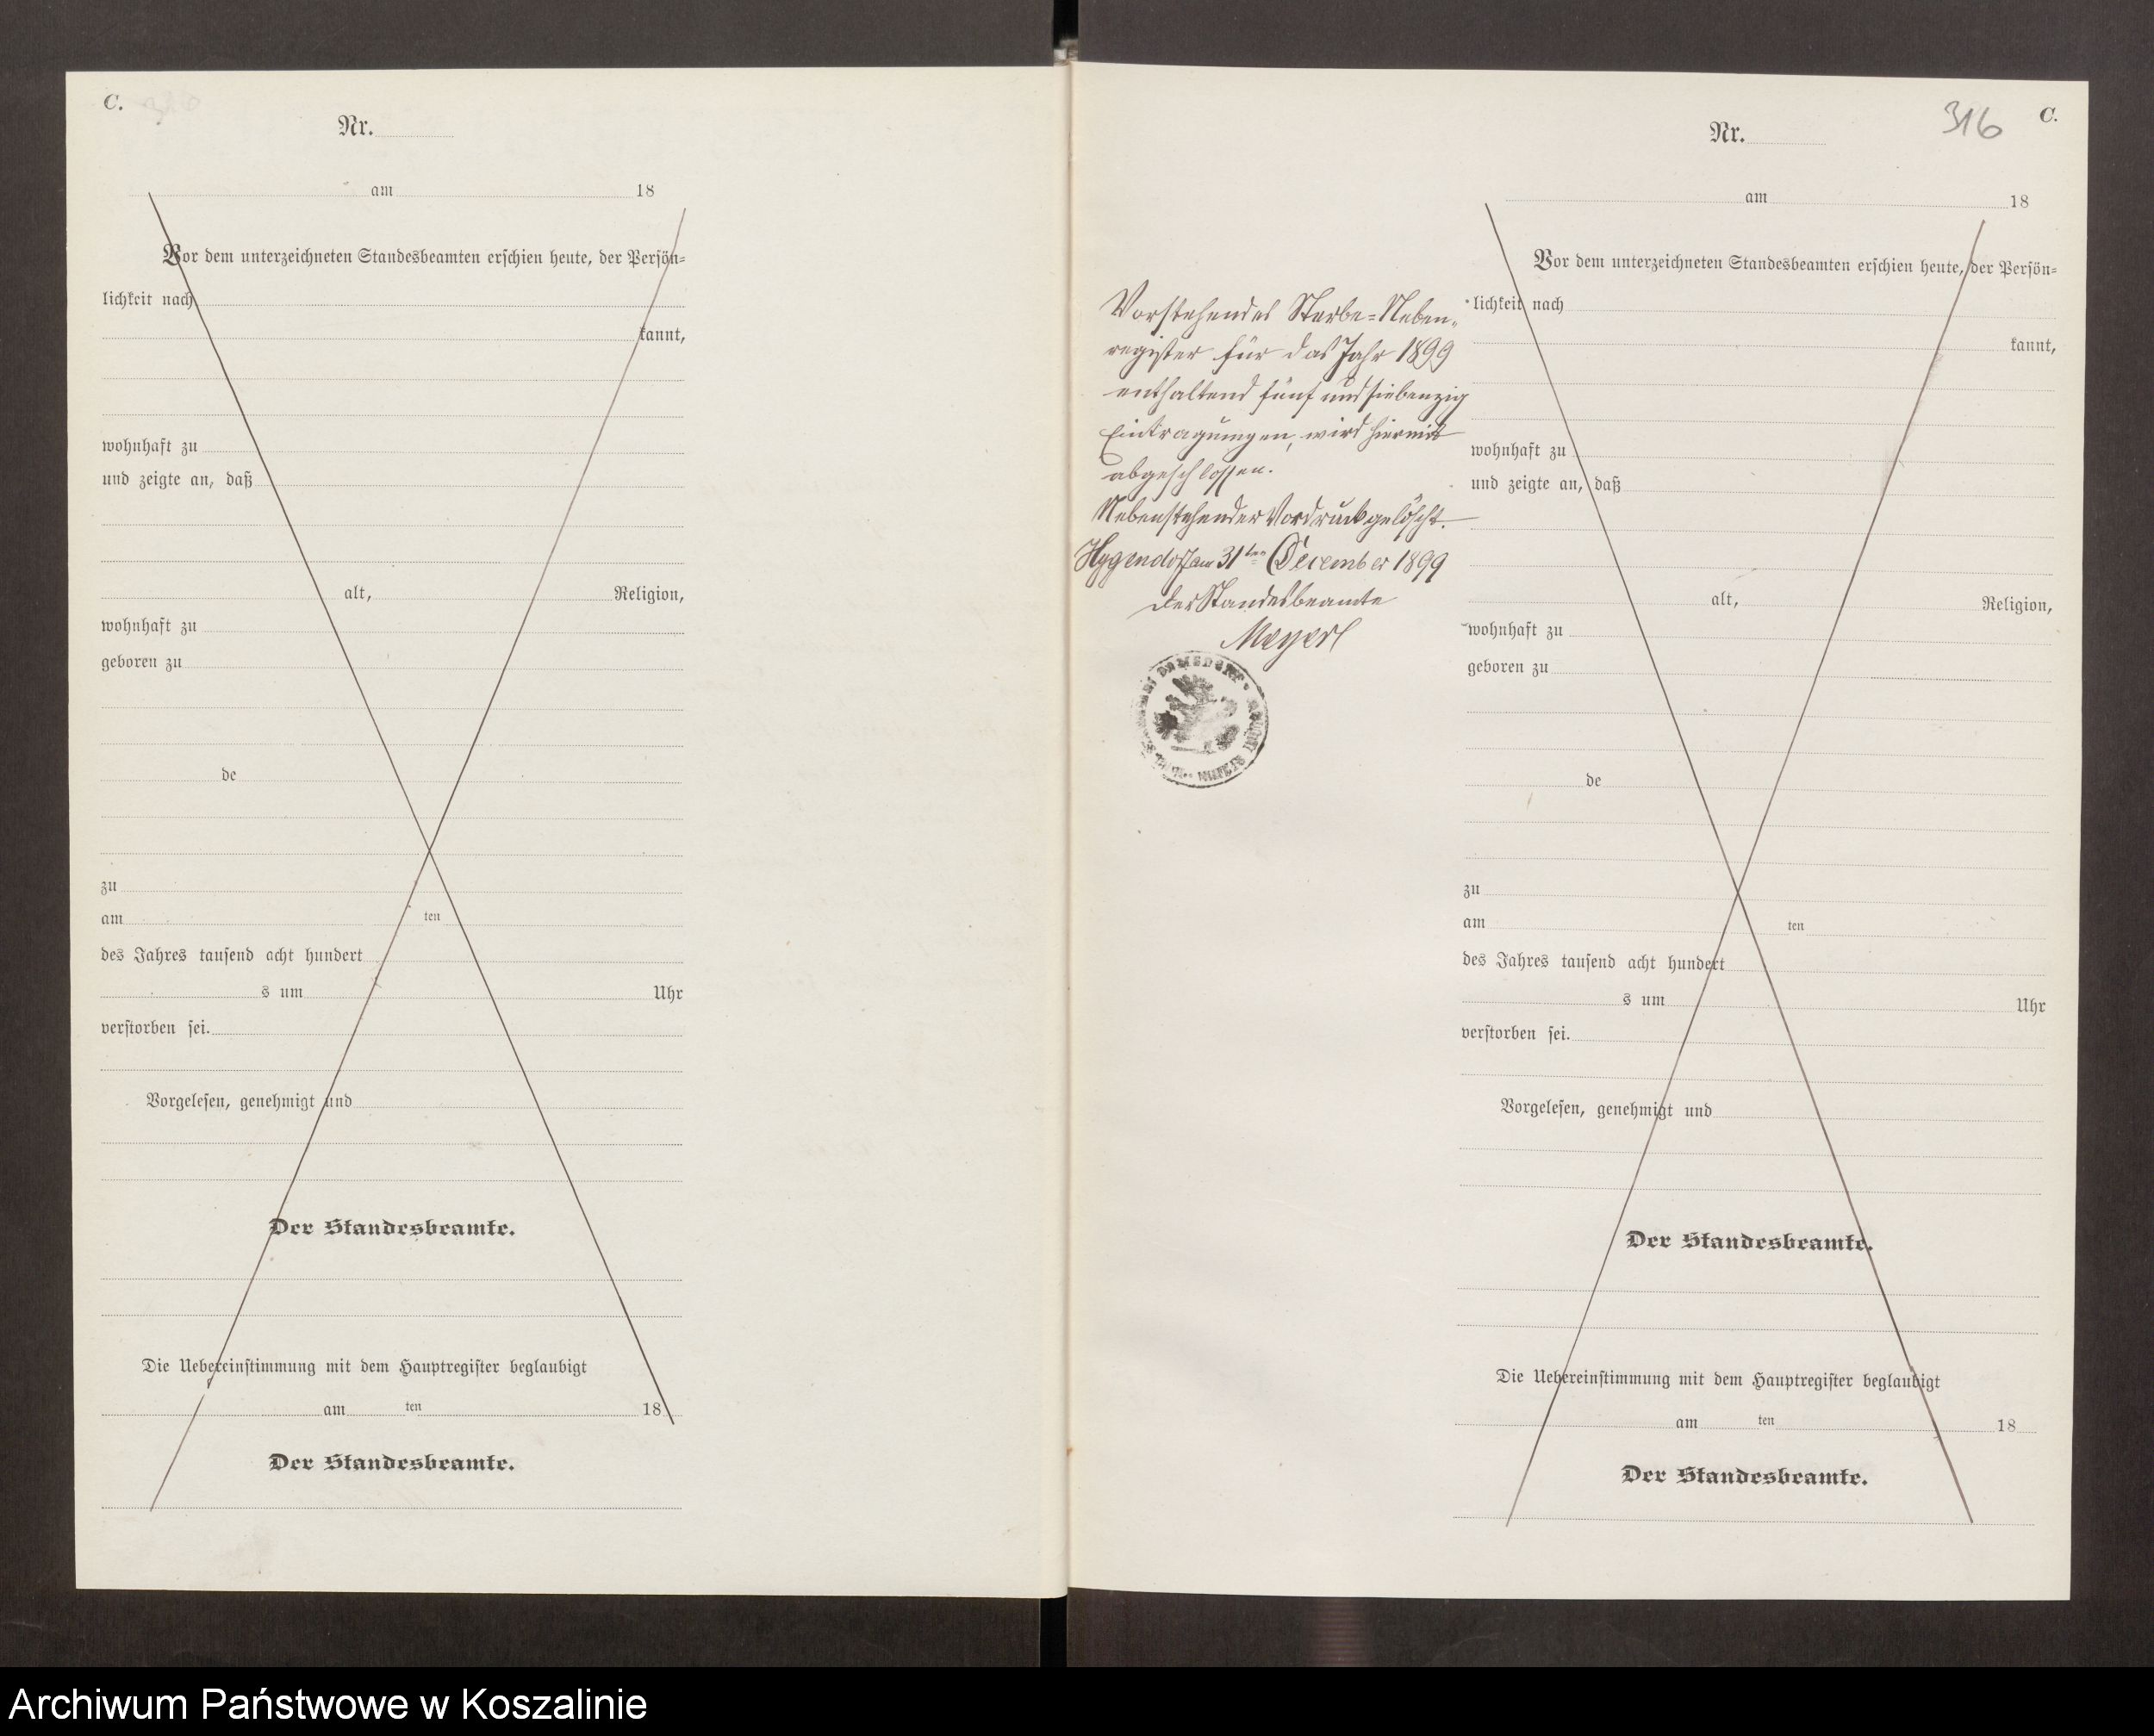 C.
Nr.
am 18
Vor dem unterzeichneten Standesbeamten erschien heute, der Persön-
lichkeit nach
kannt,
wohnhaft zu
und zeigte an, daß
alt, Religion,
wohnhaft zu
geboren zu
de
zu
am ten
des Jahres tausend acht hundert
s um Uhr
verstorben sei.
Vorgelesen, genehmigt und
Der Standesbeamte.
Die Uebereinstimmung mit dem Hauptregister beglaubigt
am ten 18
Der Standesbeamte.
Vorstehendes Sterbe=Neben-
register für das Jahr 1899
enthaltend fünf und siebenzig
Eintragungen, wird hiermit
abgeschlossen.
Nebenstehender Vordruck gelöscht.
am 31ten December 1899
Der Standesbeamte
316 C.
Nr.
am 18
Vor dem unterzeichneten Standesbeamten erschien heute, der Persön-
lichkeit nach
kannt,
wohnhaft zu
und zeigte an, daß
alt, Religion,
wohnhaft zu
geboren zu
de
zu
am ten
des Jahres tausend acht hundert
s um Uhr
verstorben sei.
Vorgelesen, genehmigt und
Der Standesbeamte.
Die Uebereinstimmung mit dem Hauptregister beglaubigt
am ten 18
Der Standesbeamte.
Archiwum Państwowe w Koszalinie